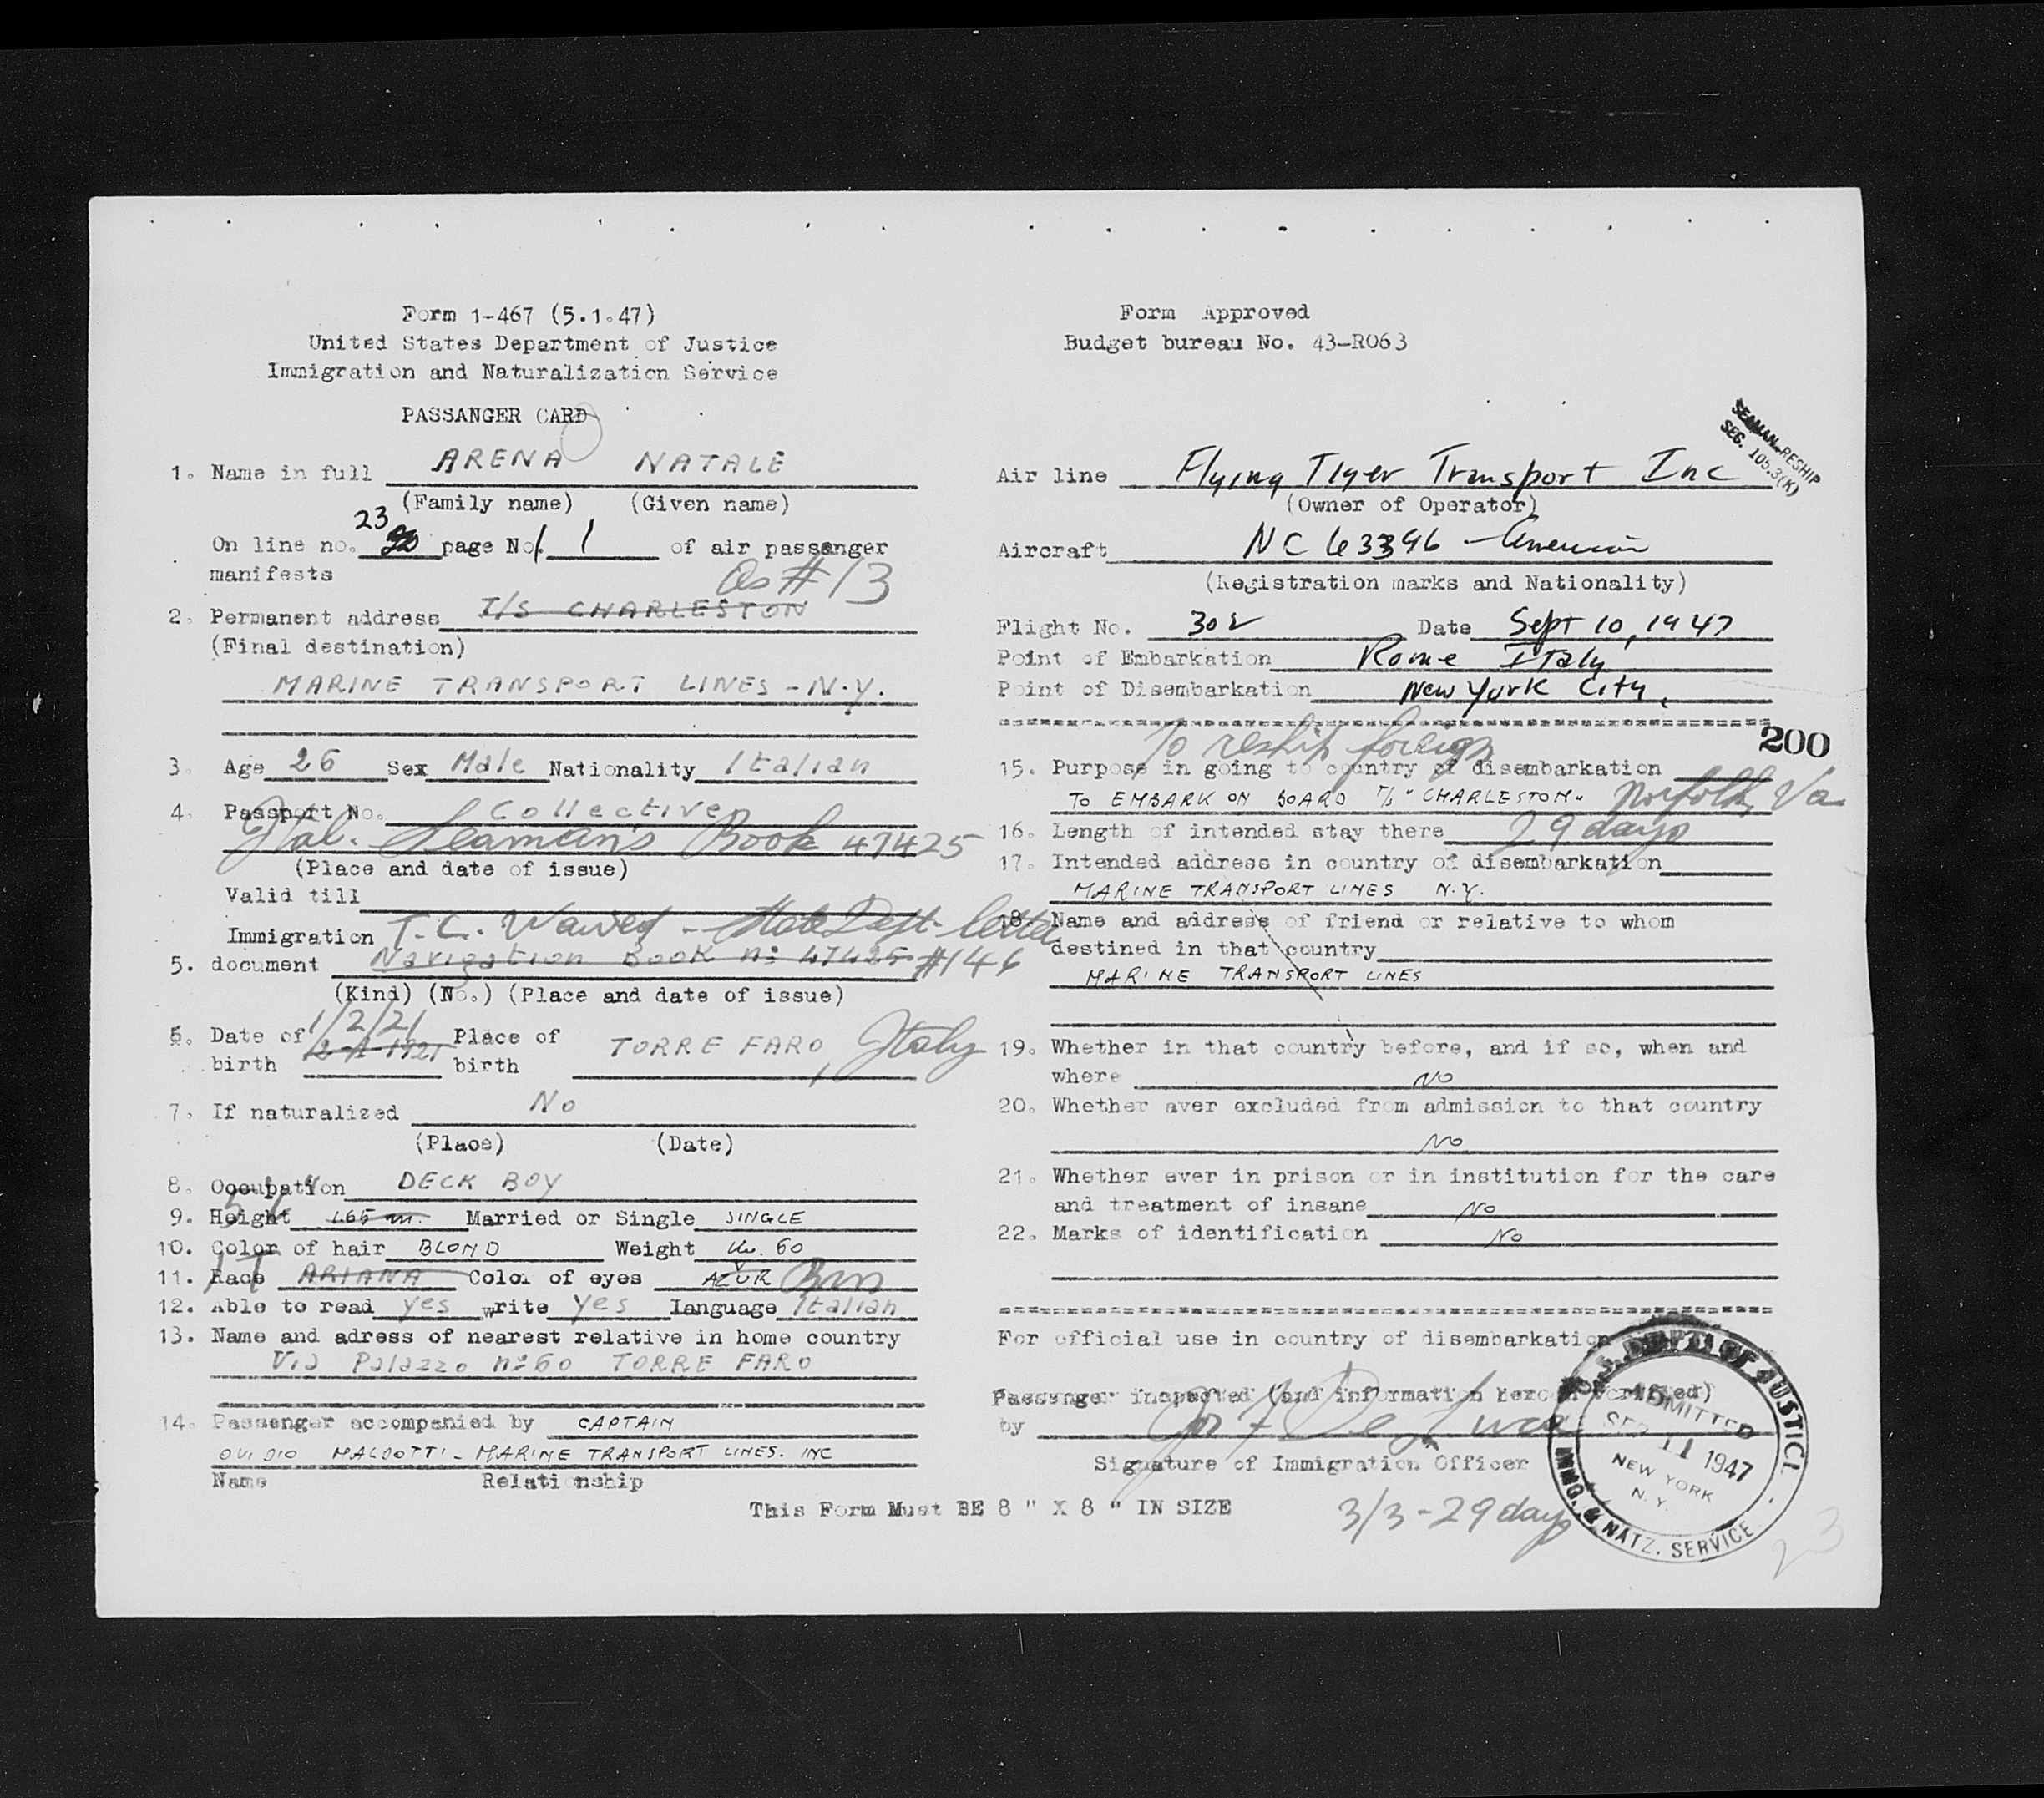 Form 1-467 (5.1.47)
United States Department of Justice
Immigration and Naturalization Service
PASSANGER CARD
Form Approved
Budget bureau No. 43-R063
SEAMAN RESHIP
SEC. 105.3(K)
1. Name in full ARENA NATALE
(Family name) (Given name)
23
On line no. page No. 1 of air passenger
manifests
as #13
2. Permanent address T/S CHARLESTON
(Final destination)
MARINE TRANSPORT LINES - N.Y.
3. Age 26 Sex Male Nationality Italian
4. Passport No. Collective
Ital. Seaman's Book 47425
(Place and date of issue)
Valid till
Immigration T.C. Waived - State Dept. letter
5. document Navigation Book n° 47425 #146
(Kind) (No.) (Place and date of issue)
1/2/21
6. Date of Place of
birth 2-1-1921 birth TORRE FARO, Italy
7. If naturalized No
(Place) (Date)
8. Occupation DECK BOY
9. Height 1.65 m. Married or Single SINGLE
10. Color of hair BLOND Weight 60
11. Race ARIANA Color of eyes AZUR Brn
IT
12. Able to read yes write yes language Italian
13. Name and adress of nearest relative in home country
Via Palazzo n° 60 TORRE FARO
14. Passenger accompanied by CAPTAIN
OVIDIO MALDOTTI - MARINE TRANSPORT LINES. INC
Name Relationship
Air line Flying Tiger Transport Inc
(Owner of Operator)
Aircraft NC 63396 - American
(Registration marks and Nationality)
Flight No. 302 Date Sept 10, 1947
Point of Embarkation Rome Italy
Point of Disembarkation New York City,
200
To reship foreign
15. Purpose in going to country of disembarkation
TO EMBARK ON BOARD T/S "CHARLESTON" Norfolk, Va.
16. Length of intended stay there 29 days
17. Intended address in country of disembarkation
MARINE TRANSPORT LINES N.Y.
18. Name and address of friend or relative to whom
destined in that country
MARINE TRANSPORT LINES
19. Whether in that country before, and if so, when and
where NO
20. Whether aver excluded from admission to that country
NO
21. Whether ever in prison or in institution for the care
and treatment of insane No
22. Marks of identification No
For official use in country of disembarkation
Passenger inspected (and information hereon verified)
by De Luca
Signature of Immigration Officer
This Form Must BE 8 " X 8 " IN SIZE
3/3 - 29 days
U.S. DEPT. OF JUSTICE
ADMITTED
SEP 11 1947
NEW YORK
N. Y.
IMMG. & NATZ. SERVICE
23